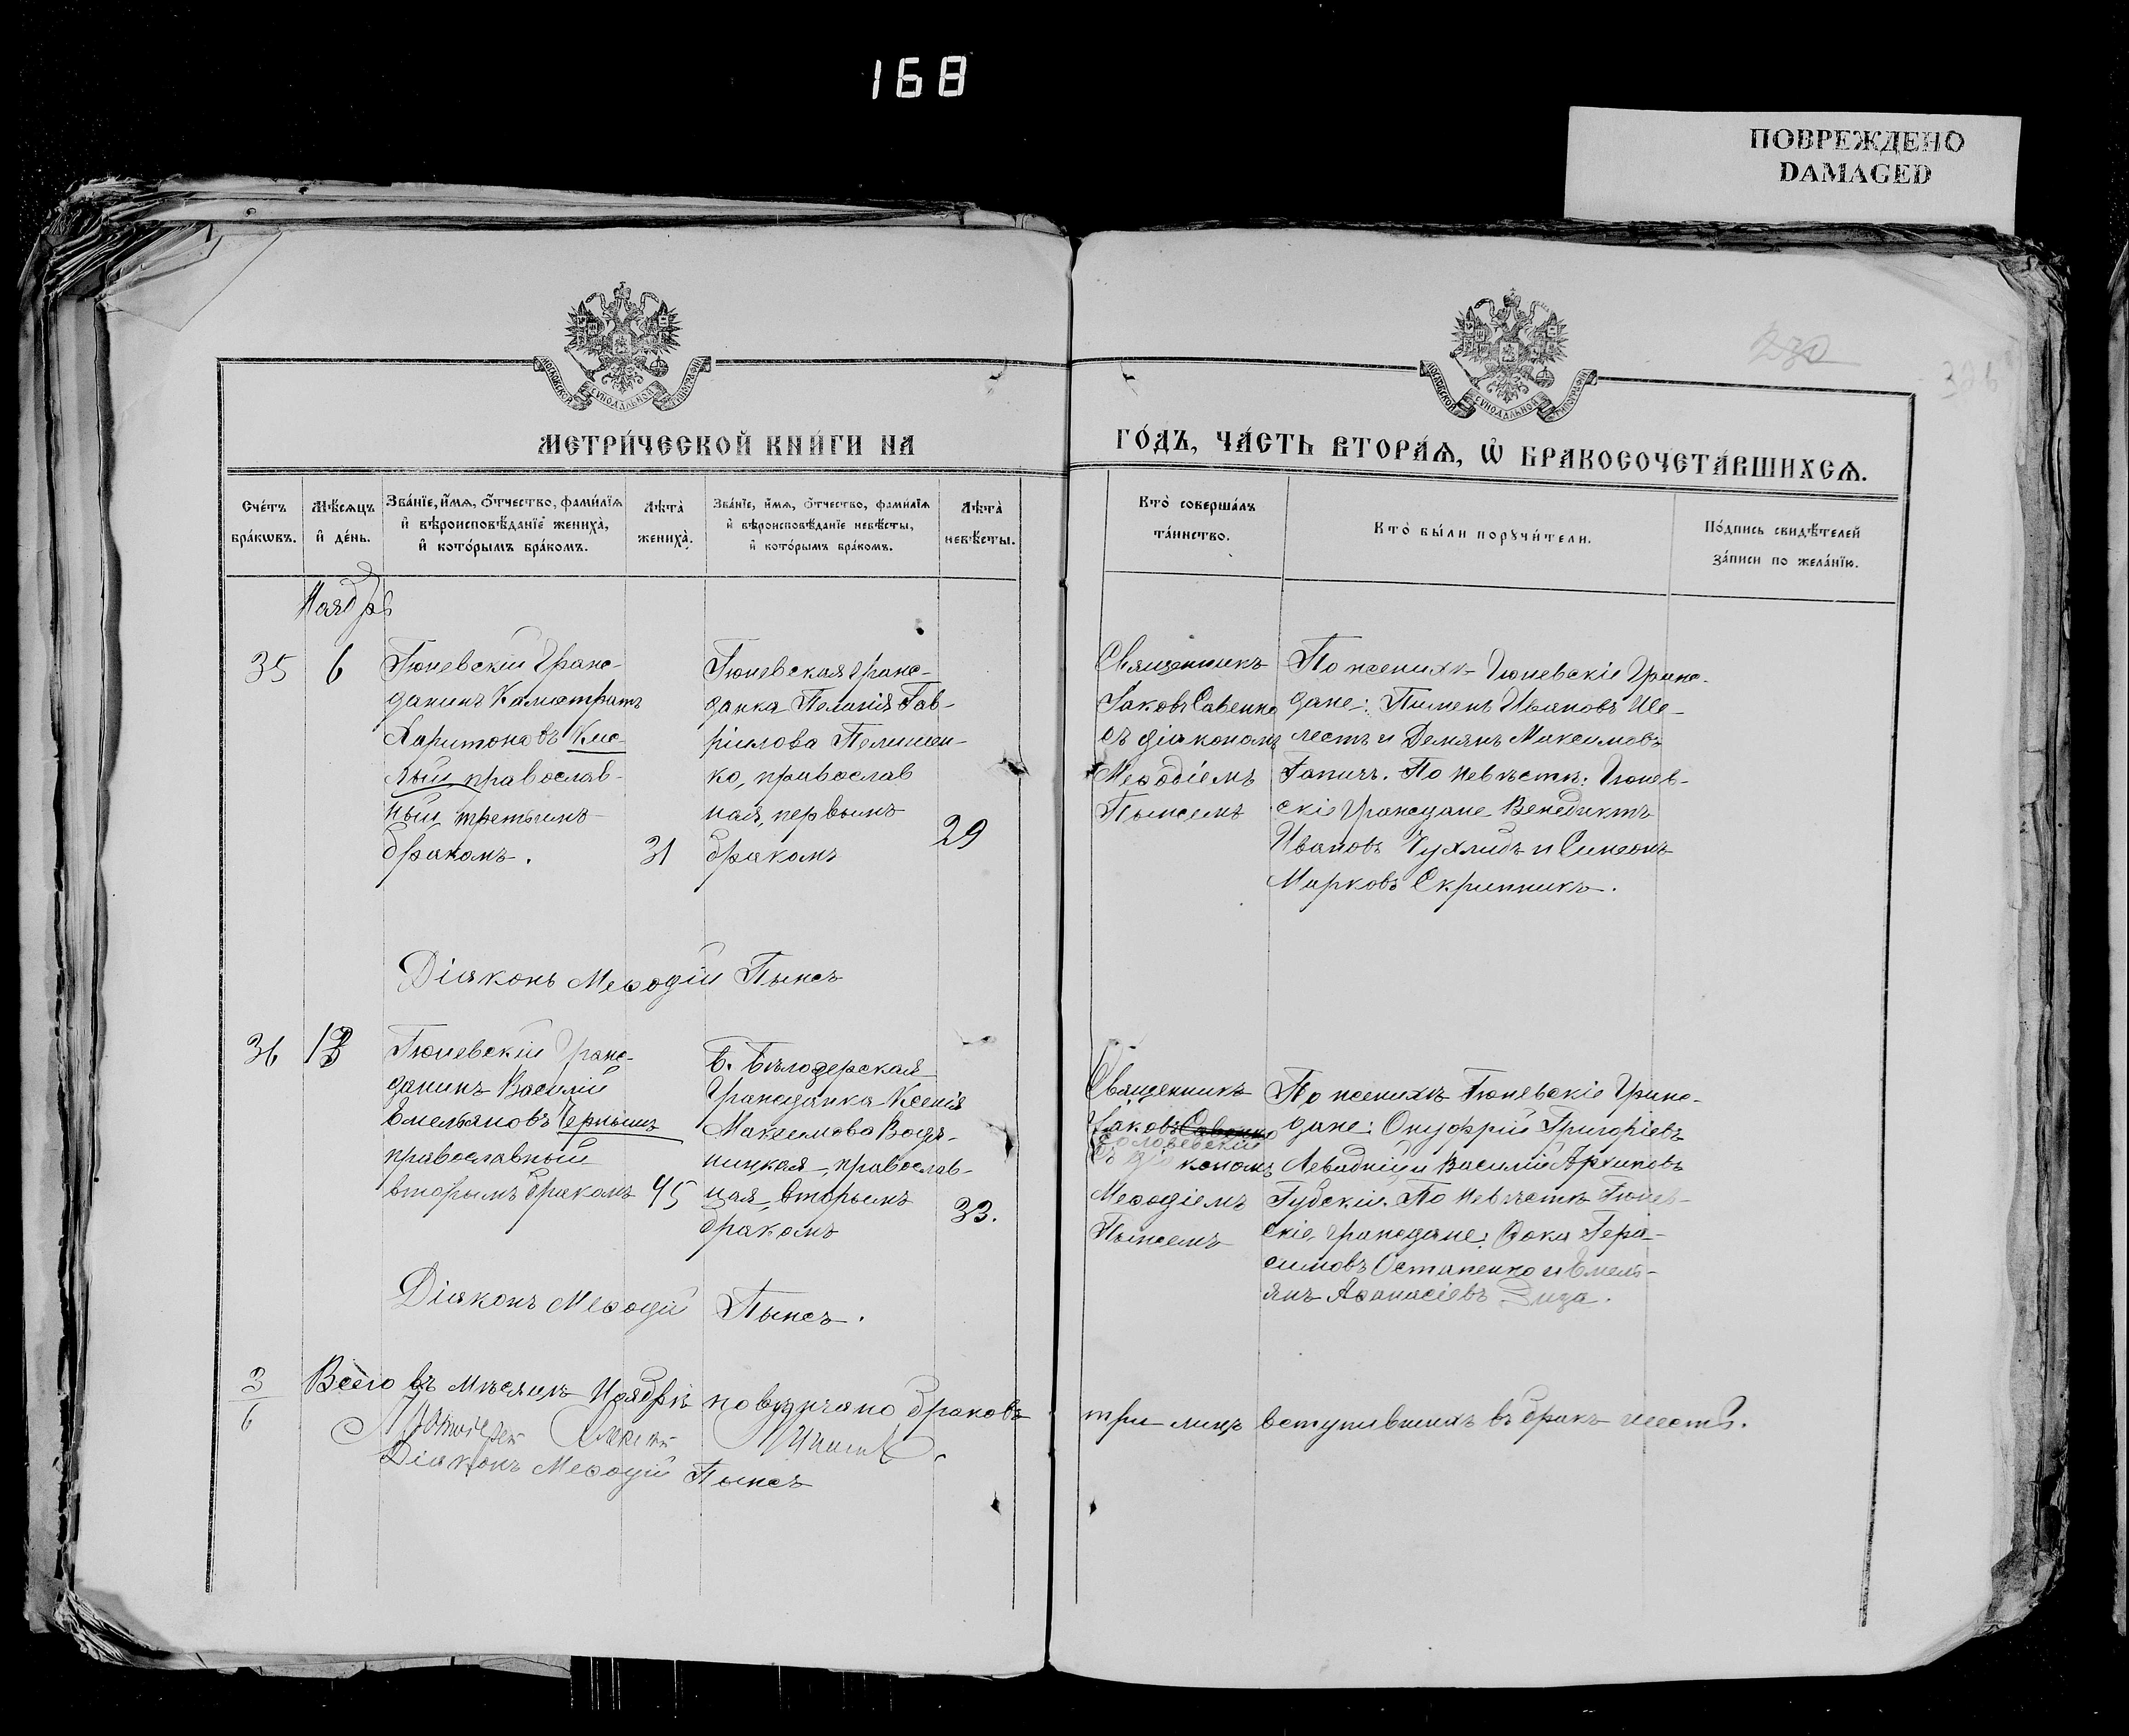 168
ПОВРЕЖДЕНО
DAMAGED
МОСКОВСКОЙ СѴНОДАЛЬНОЙ ТИПОГРАФІИ
МОСКОВСКОЙ СѴНОДАЛЬНОЙ ТИПОГРАФІИ
230
326
МЕТРИ́ЧЕСКОЙ КНИ́ГИ НА
ГО́ДЪ, ЧА́СТЬ ВТОРА́Ѧ, Ѡ҆ БРАКОСОЧЕТА́ВШИХСѦ.
Сче́тъ
бра́кѡвъ.
Мѣ́сѧцъ
и҆ де́нь.
Зва́нїе, и҆́мѧ, ѻ҆́тчество, фами́лїѧ
и҆ вѣроисповѣ́данїе жениха̀,
и҆ кото́рымъ бра́комъ.
Лѣ́та
жениха̀.
Зва́нїе, и҆́мѧ, ѻ҆́тчество, фами́лїѧ
и҆ вѣроисповѣ́данїе невѣ́сты,
и҆ кото́рымъ бра́комъ.
Лѣ́та
невѣ́сты.
Кто̀ соверша́лъ
та́инство.
Кто̀ бы́ли порꙋчи́тели.
По́дпись свидѣ́телей
за́писи по жела́нїю.
Ноябрь
35
6
Гюневскій Граж-
данинъ Калистратъ
Харитоновъ Кис-
лый, православ-
ный, третьимъ
бракомъ.
31
Гюневская Граж-
данка Пелагія Гав-
ріилова Пелишен-
ко, православ
ная, первымъ
бракомъ
29
Священникъ
Іаковъ Савенко
съ діакономъ
Меѳодіемъ
Пыжемъ
По женихѣ Гюневскіе Граж-
дане: Пименъ Ивановъ Ше-
лестъ и Демянъ Максимовъ
Гапичъ. По невѣстѣ: Гюнев-
скіе Граждане Венедиктъ
Ивановъ Чухлибъ и Симеонъ
Марковъ Скрипникъ.
Діаконъ Меѳодій Пыжъ
36
13
Гюневскій Граж-
данинъ Василій
Емельяновъ Чернышъ
православный
вторымъ бракомъ
45
Б. Бѣлозерская
Гражданка Ксенія
Максимова Водя-
ницкая, православ-
ная, вторымъ
бракомъ
33.
Священникъ
Іаковъ Савенко
Соловевскій
съ діакономъ
Меѳодіемъ
Пыжемъ
По женихѣ Гюневскіе Граж-
дане: Онуфрій Григоріевъ
Левадній и Василій Архиповъ
Губскій. По невѣстѣ Гюнев-
скіе, Граждане: Ѳока Гера-
симовъ Остапенко и Емель-
янъ Аѳанасіевъ Зиза.
Діаконъ Меѳодій Пыжъ.
3
6
Всего въ мѣсяцѣ Ноябрѣ повѣнчано браковъ три лицъ вступившихъ въ бракъ шесть.
Протоіерей Алексій
Діаконъ Меѳодій Пыжъ